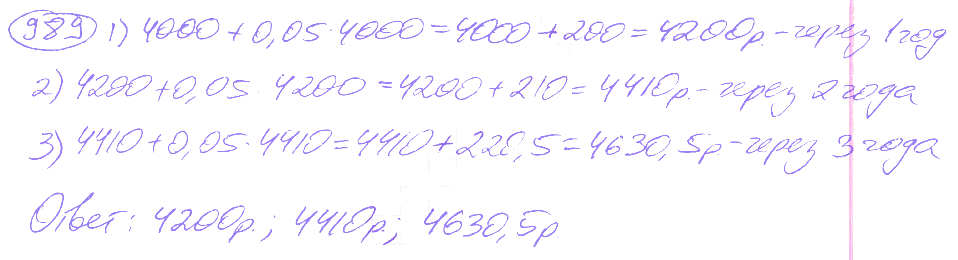 989 1) 4000 + 0,05 · 4000 = 4000 + 200 = 4200р. - через 1 год
2) 4200 + 0,05 · 4200 = 4200 + 210 = 4410р. - через 2 года
3) 4410 + 0,05 · 4410 = 4410 + 220,5 = 4630,5р. - через 3 года
Ответ: 4200р.; 4410р.; 4630,5р